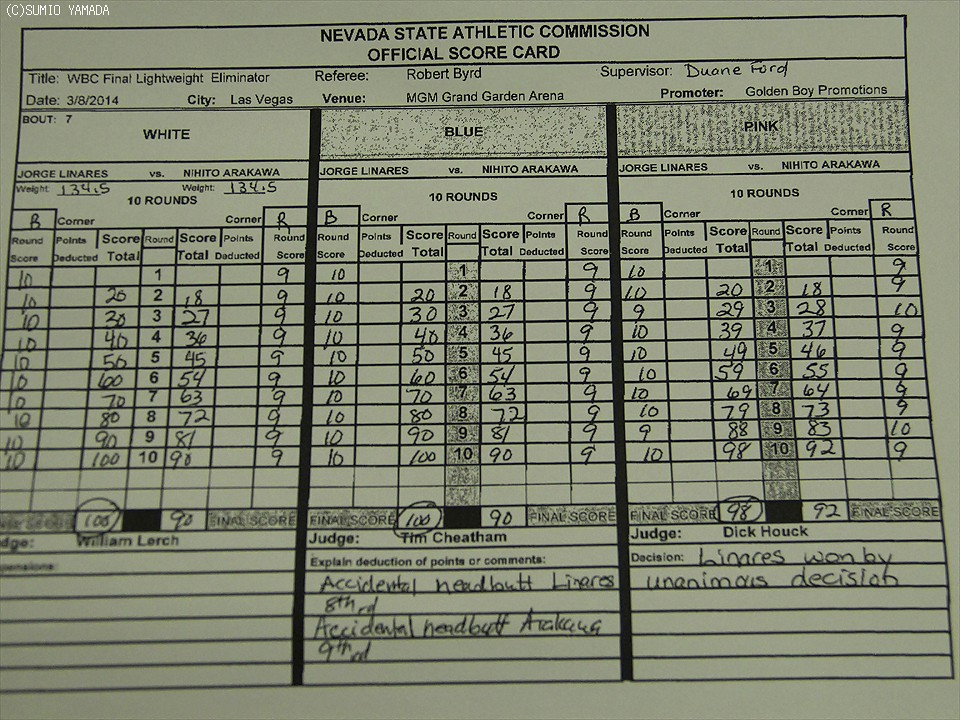 (C)SUMIO YAMADA
NEVADA STATE ATHLETIC COMMISSION
OFFICIAL SCORE CARD
Title: WBC Final Lightweight Eliminator Referee: Robert Byrd Supervisor: Duane Ford
Date: 3/8/2014 City: Las Vegas Venue: MGM Grand Garden Arena Promoter: Golden Boy Promotions
BOUT: 7
WHITE BLUE PINK
JORGE LINARES vs. NIHITO ARAKAWA JORGE LINARES vs. NIHITO ARAKAWA JORGE LINARES vs. NIHITO ARAKAWA
Weight: 134.5 Weight: 134.5
10 ROUNDS 10 ROUNDS 10 ROUNDS
B Corner Corner R B Corner Corner R B Corner Corner R
Round Points Score Round Score Points Round Round Points Score Round Score Points Round Round Points Score Round Score Points Round
Score Deducted Total Total Deducted Score Score Deducted Total Total Deducted Score Score Deducted Total Total Deducted Score
10 1 9 10 1 9 10 1 9
10 20 2 18 9 10 20 2 18 9 10 20 2 18 9
10 30 3 27 9 10 30 3 27 9 9 29 3 28 10
10 40 4 36 9 10 40 4 36 9 10 39 4 37 9
10 50 5 45 9 10 50 5 45 9 10 49 5 46 9
10 60 6 54 9 10 60 6 54 9 10 59 6 55 9
10 70 7 63 9 10 70 7 63 9 10 69 7 64 9
10 80 8 72 9 10 80 8 72 9 10 79 8 73 9
10 90 9 81 9 10 90 9 81 9 9 88 9 83 10
10 100 10 90 9 10 100 10 90 9 10 98 10 92 9
SCORE 100 90 FINAL SCORE FINAL SCORE 100 90 FINAL SCORE FINAL SCORE 98 92 FINAL SCORE
dge: William Lerch Judge: Tim Cheatham Judge: Dick Houck
pensions: Explain deduction of points or comments: Decision: Linares won by
Accidental headbutt Linares unanimous decision
8th rd
Accidental headbutt Arakawa
9th rd